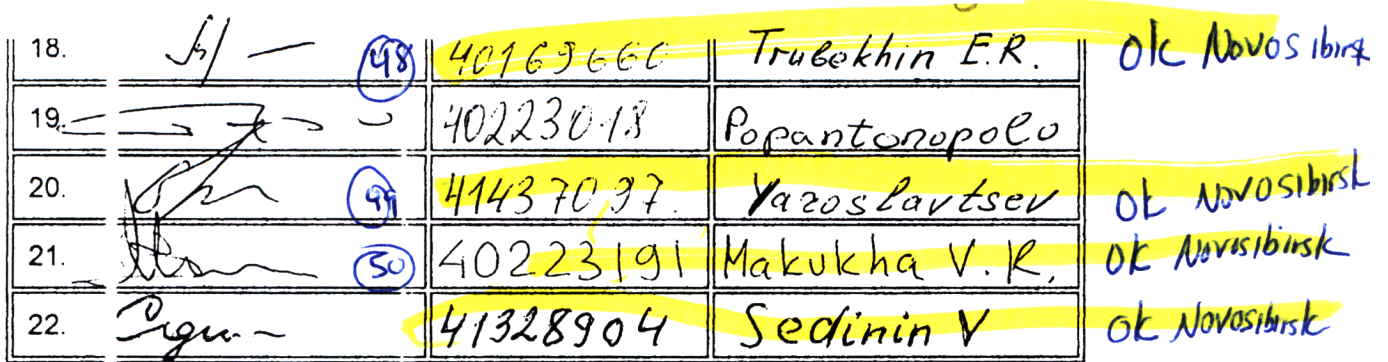 18. 48 40169660 Trubekhin E.R. ok Novosibirsk
19. 40223018 Popantonopolo
20. 49 41437097. Yaroslavtsev ok Novosibirsk
21. 50 40223191 Makukha V.R. ok Novosibirsk
22. 41328904 Sedinin V ok Novosibirsk